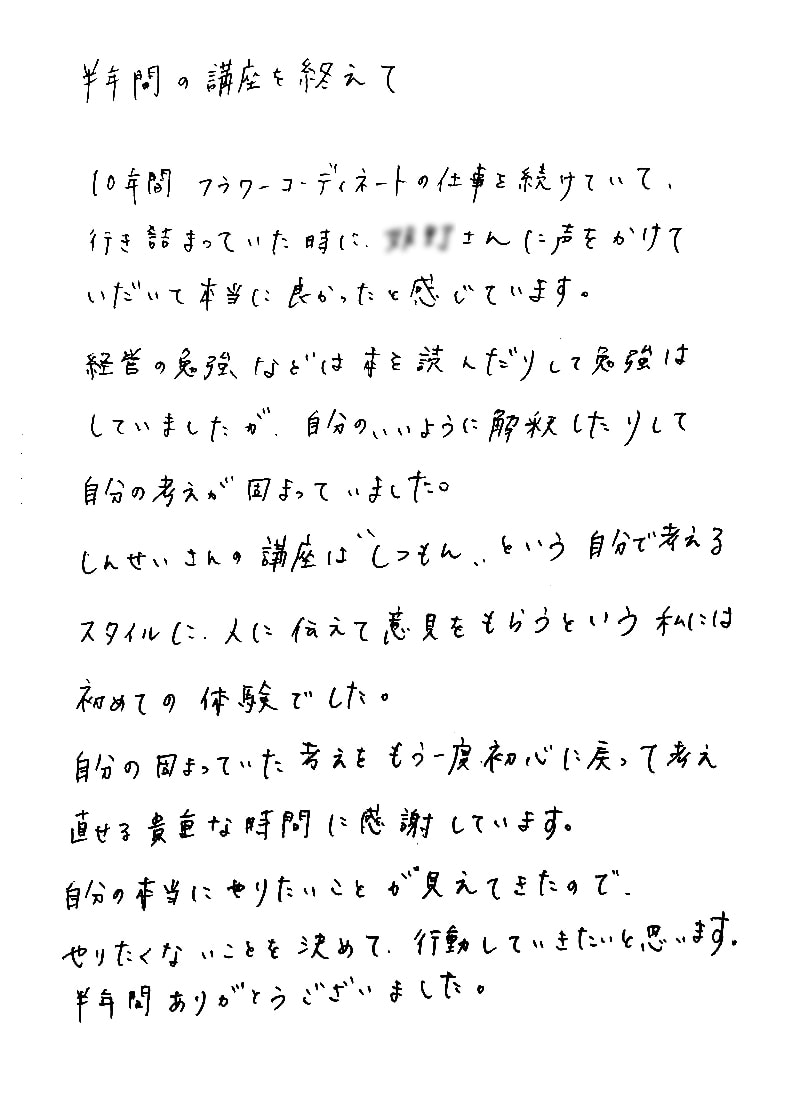 半年間の講座を終えて
10年間フラワーコーディネートの仕事を続けていて、
行き詰まっていた時に、さんに声をかけて
いただいて本当に良かったと感じています。
経営の勉強などは本を読んだりして勉強は
していましたが、自分のいいように解釈したりして
自分の考えが固まっていました。
しんせいさんの講座は“しつもん„という自分で考える
スタイルに、人に伝えて意見をもらうという私には
初めての体験でした。
自分の固まっていた考えをもう一度初心に戻って考え
直せる貴重な時間に感謝しています。
自分の本当にやりたいことが見えてきたので、
やりたくないことを決めて、行動していきたいと思います。
半年間ありがとうございました。